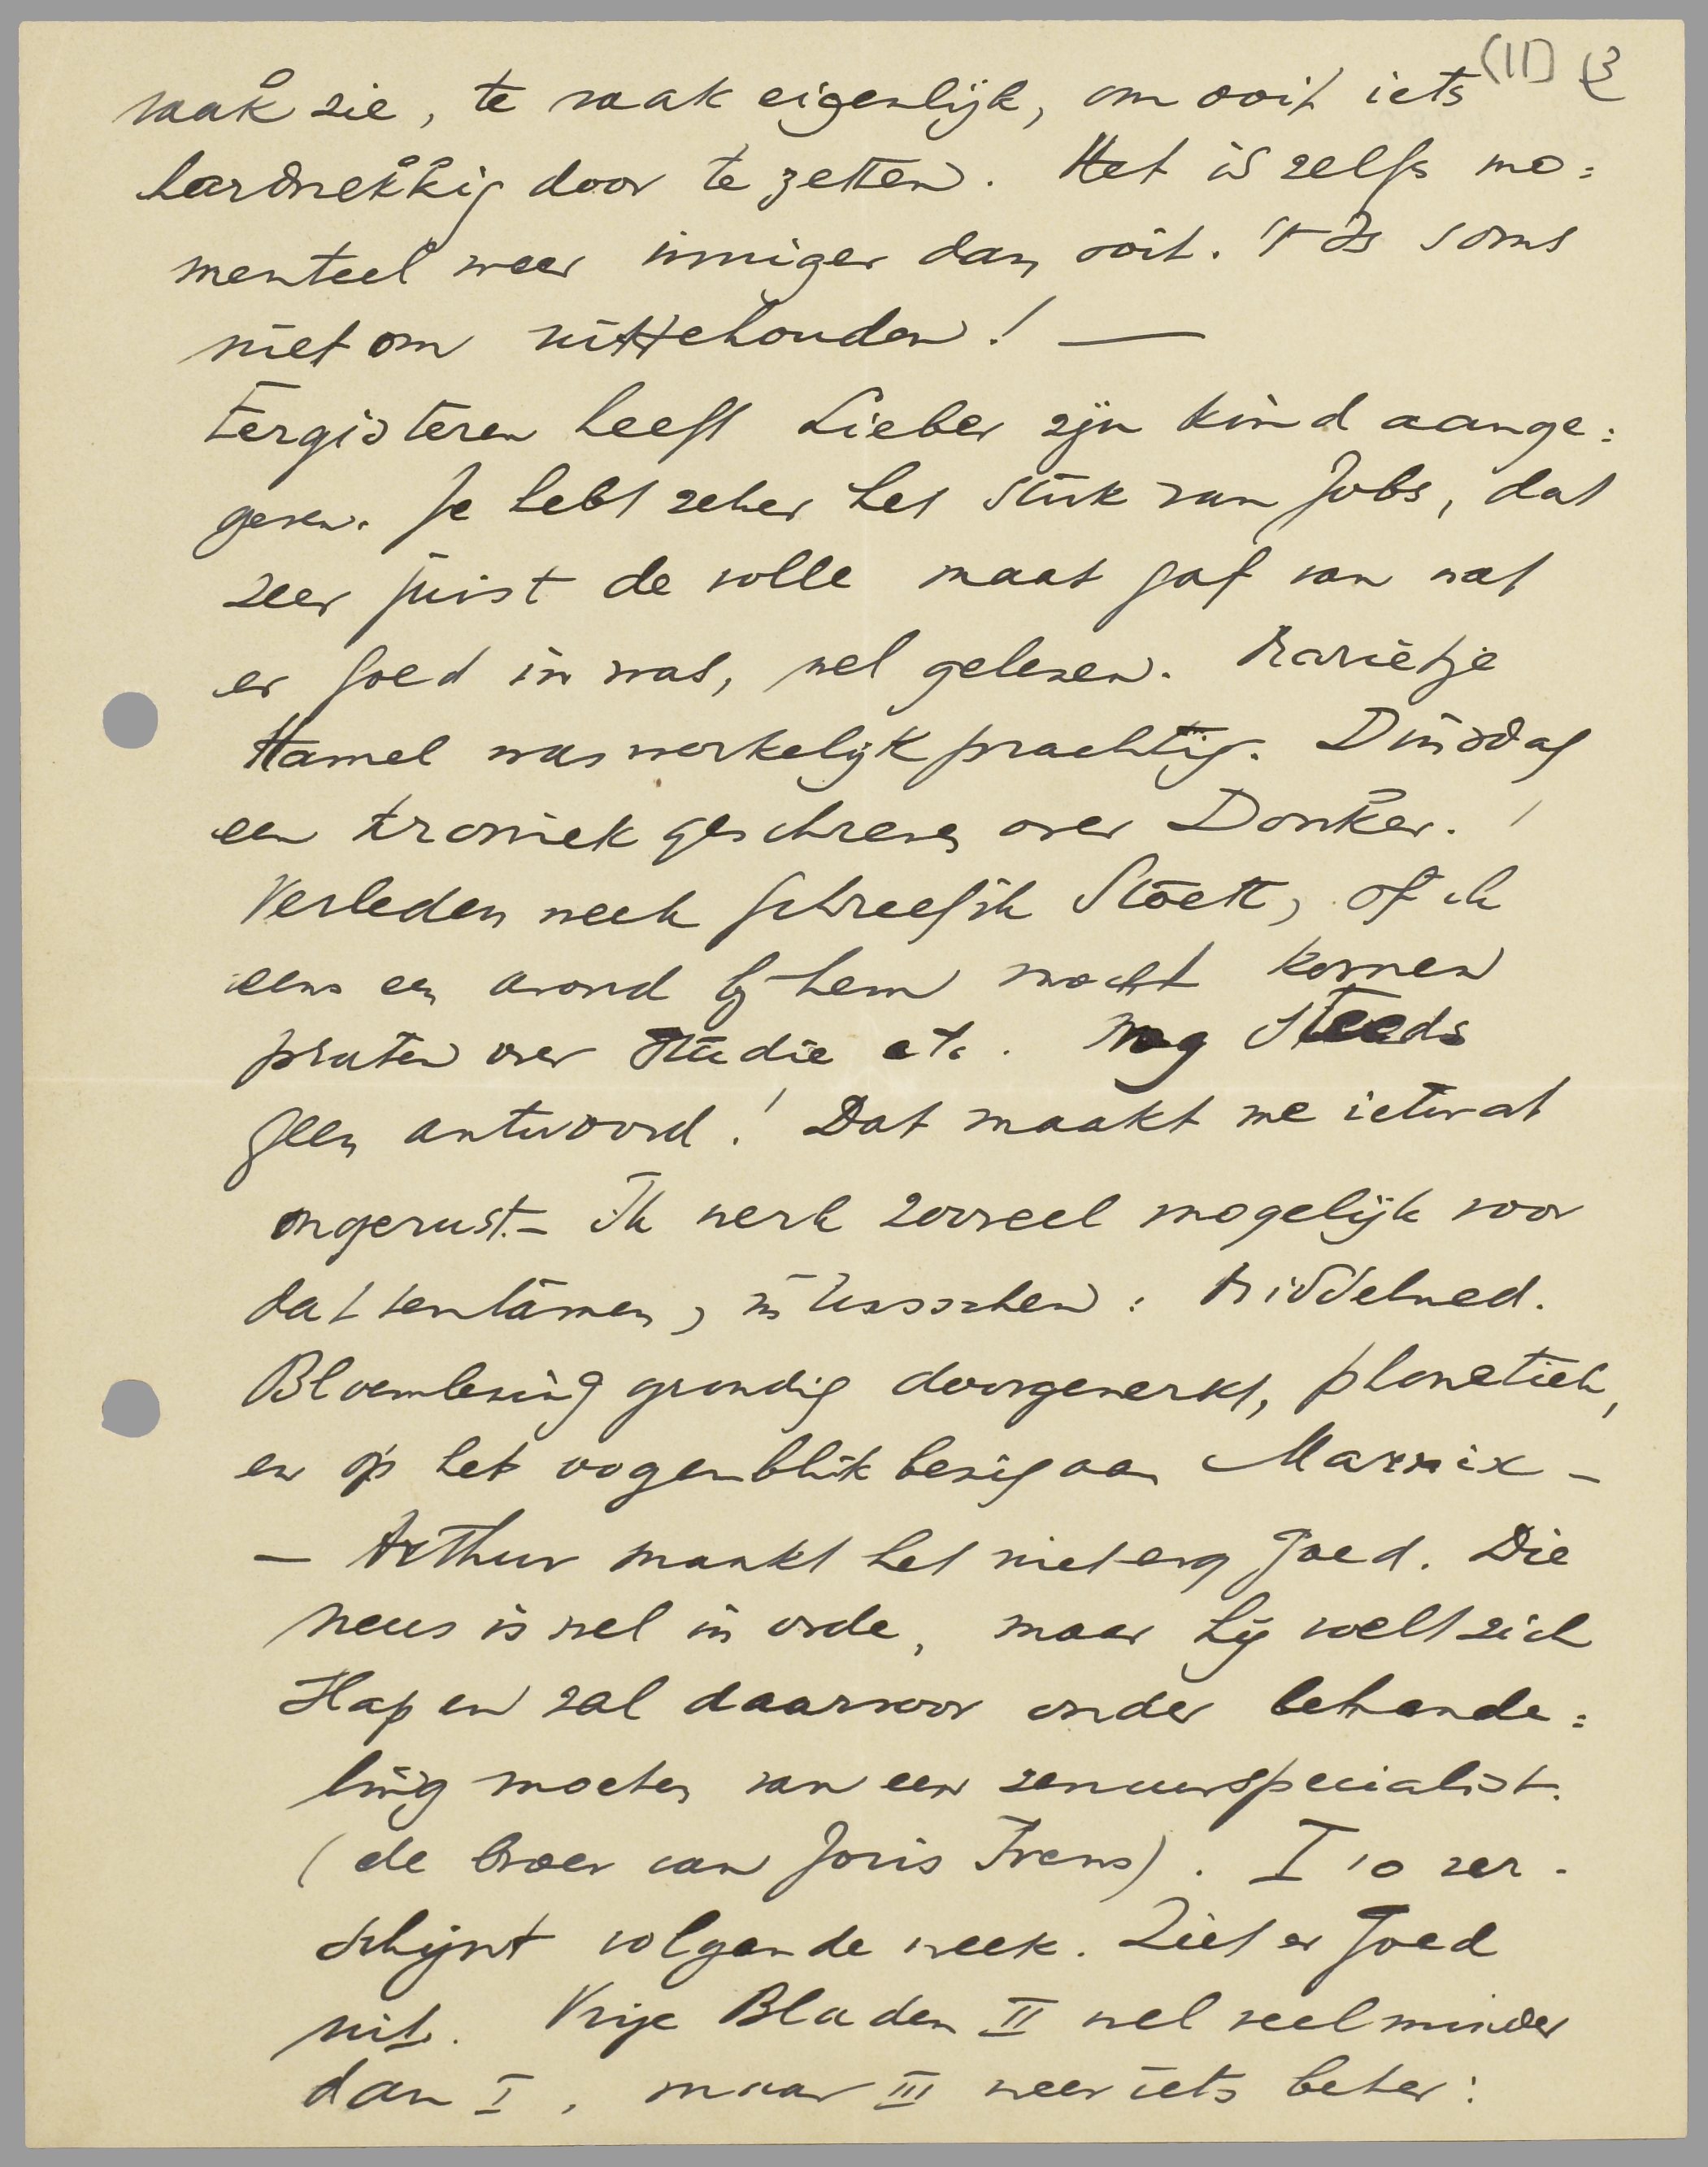 (II) (3
vaak zie, te vaak eigenlijk, om ooit iets
hardnekkig door te zetten. Het is zelfs mo=
menteel weer inniger dan ooit. 't Is soms
niet om uittehouden! —
Eergisteren heeft Lieber zijn kind aange=
geven. Je hebt zeker het stuk van Jobs, dat
zeer juist de volle maat gaf van wat
er goed in was, wel gelezen. Marietje
Hamel was werkelijk prachtig. Dinsdag
een kroniek geschreven over Donker.
Verleden week schreef ik Stoett, of ik
eens een avond bij hem mocht komen
praten over studie etc. Nog steeds
geen antwoord! Dat maakt me ietwat
ongerust. – Ik werk zooveel mogelijk voor
dat tentamen, intusschen: Middelned.
Bloemlezing grondig doorgewerkt, phonetiek,
en op het oogenblik bezig aan Marnix –
— Arthur maakt het niet erg goed. Die
neus is wel in orde, maar hij voelt zich
slap en zal daarvoor onder behande=
ling moeten van een zenuwspecialist.
(de broer van Joris Ivens). I 10 ver-
schijnt volgende week. Ziet er goed
uit. Vrije Bladen II wel veel minder
dan I, maar III weer iets beter: